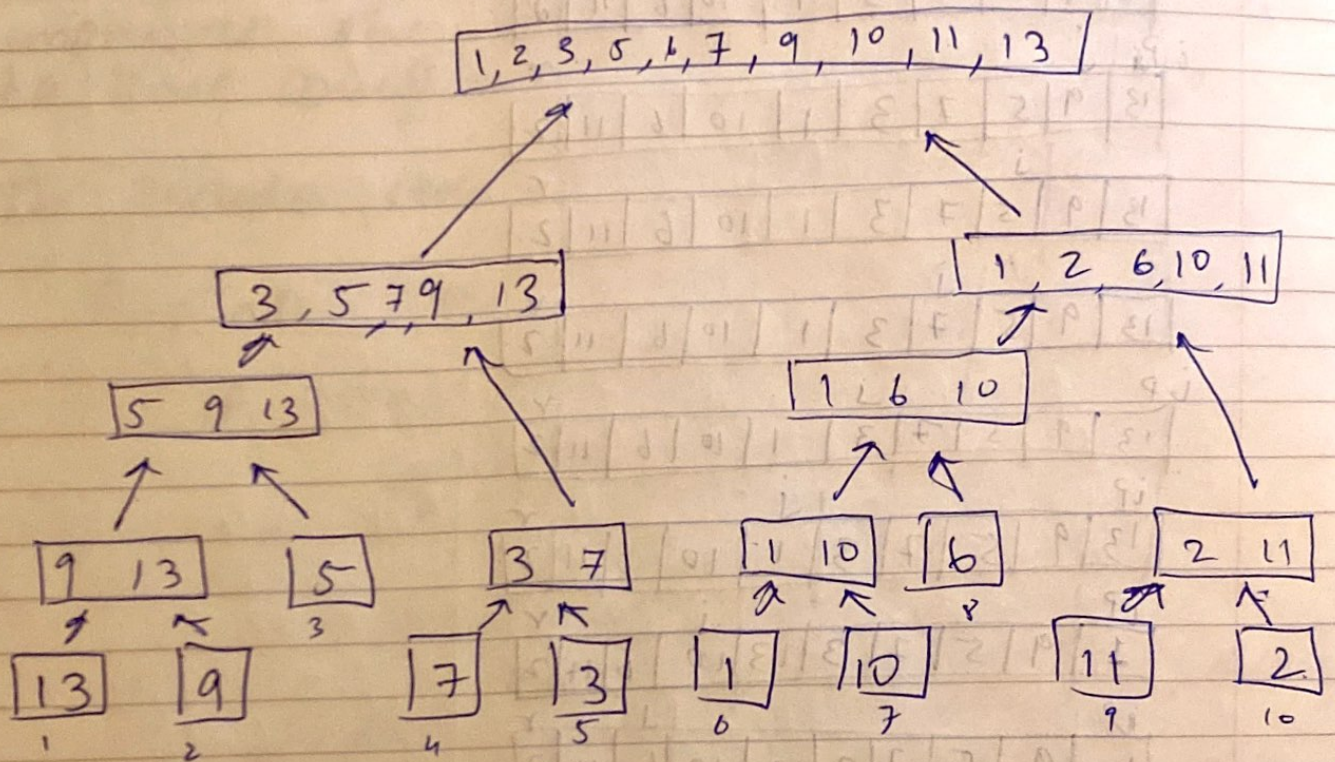 1, 2, 3, 5, 6, 7, 9, 10, 11, 13
3, 5, 7, 9, 13
1, 2, 6, 10, 11
5 9 13
1, 6 10
9 13
5
3 7
1 10
6
2 11
3
8
13
9
7
3
1
10
11
2
1
2
4
5
6
7
9
10